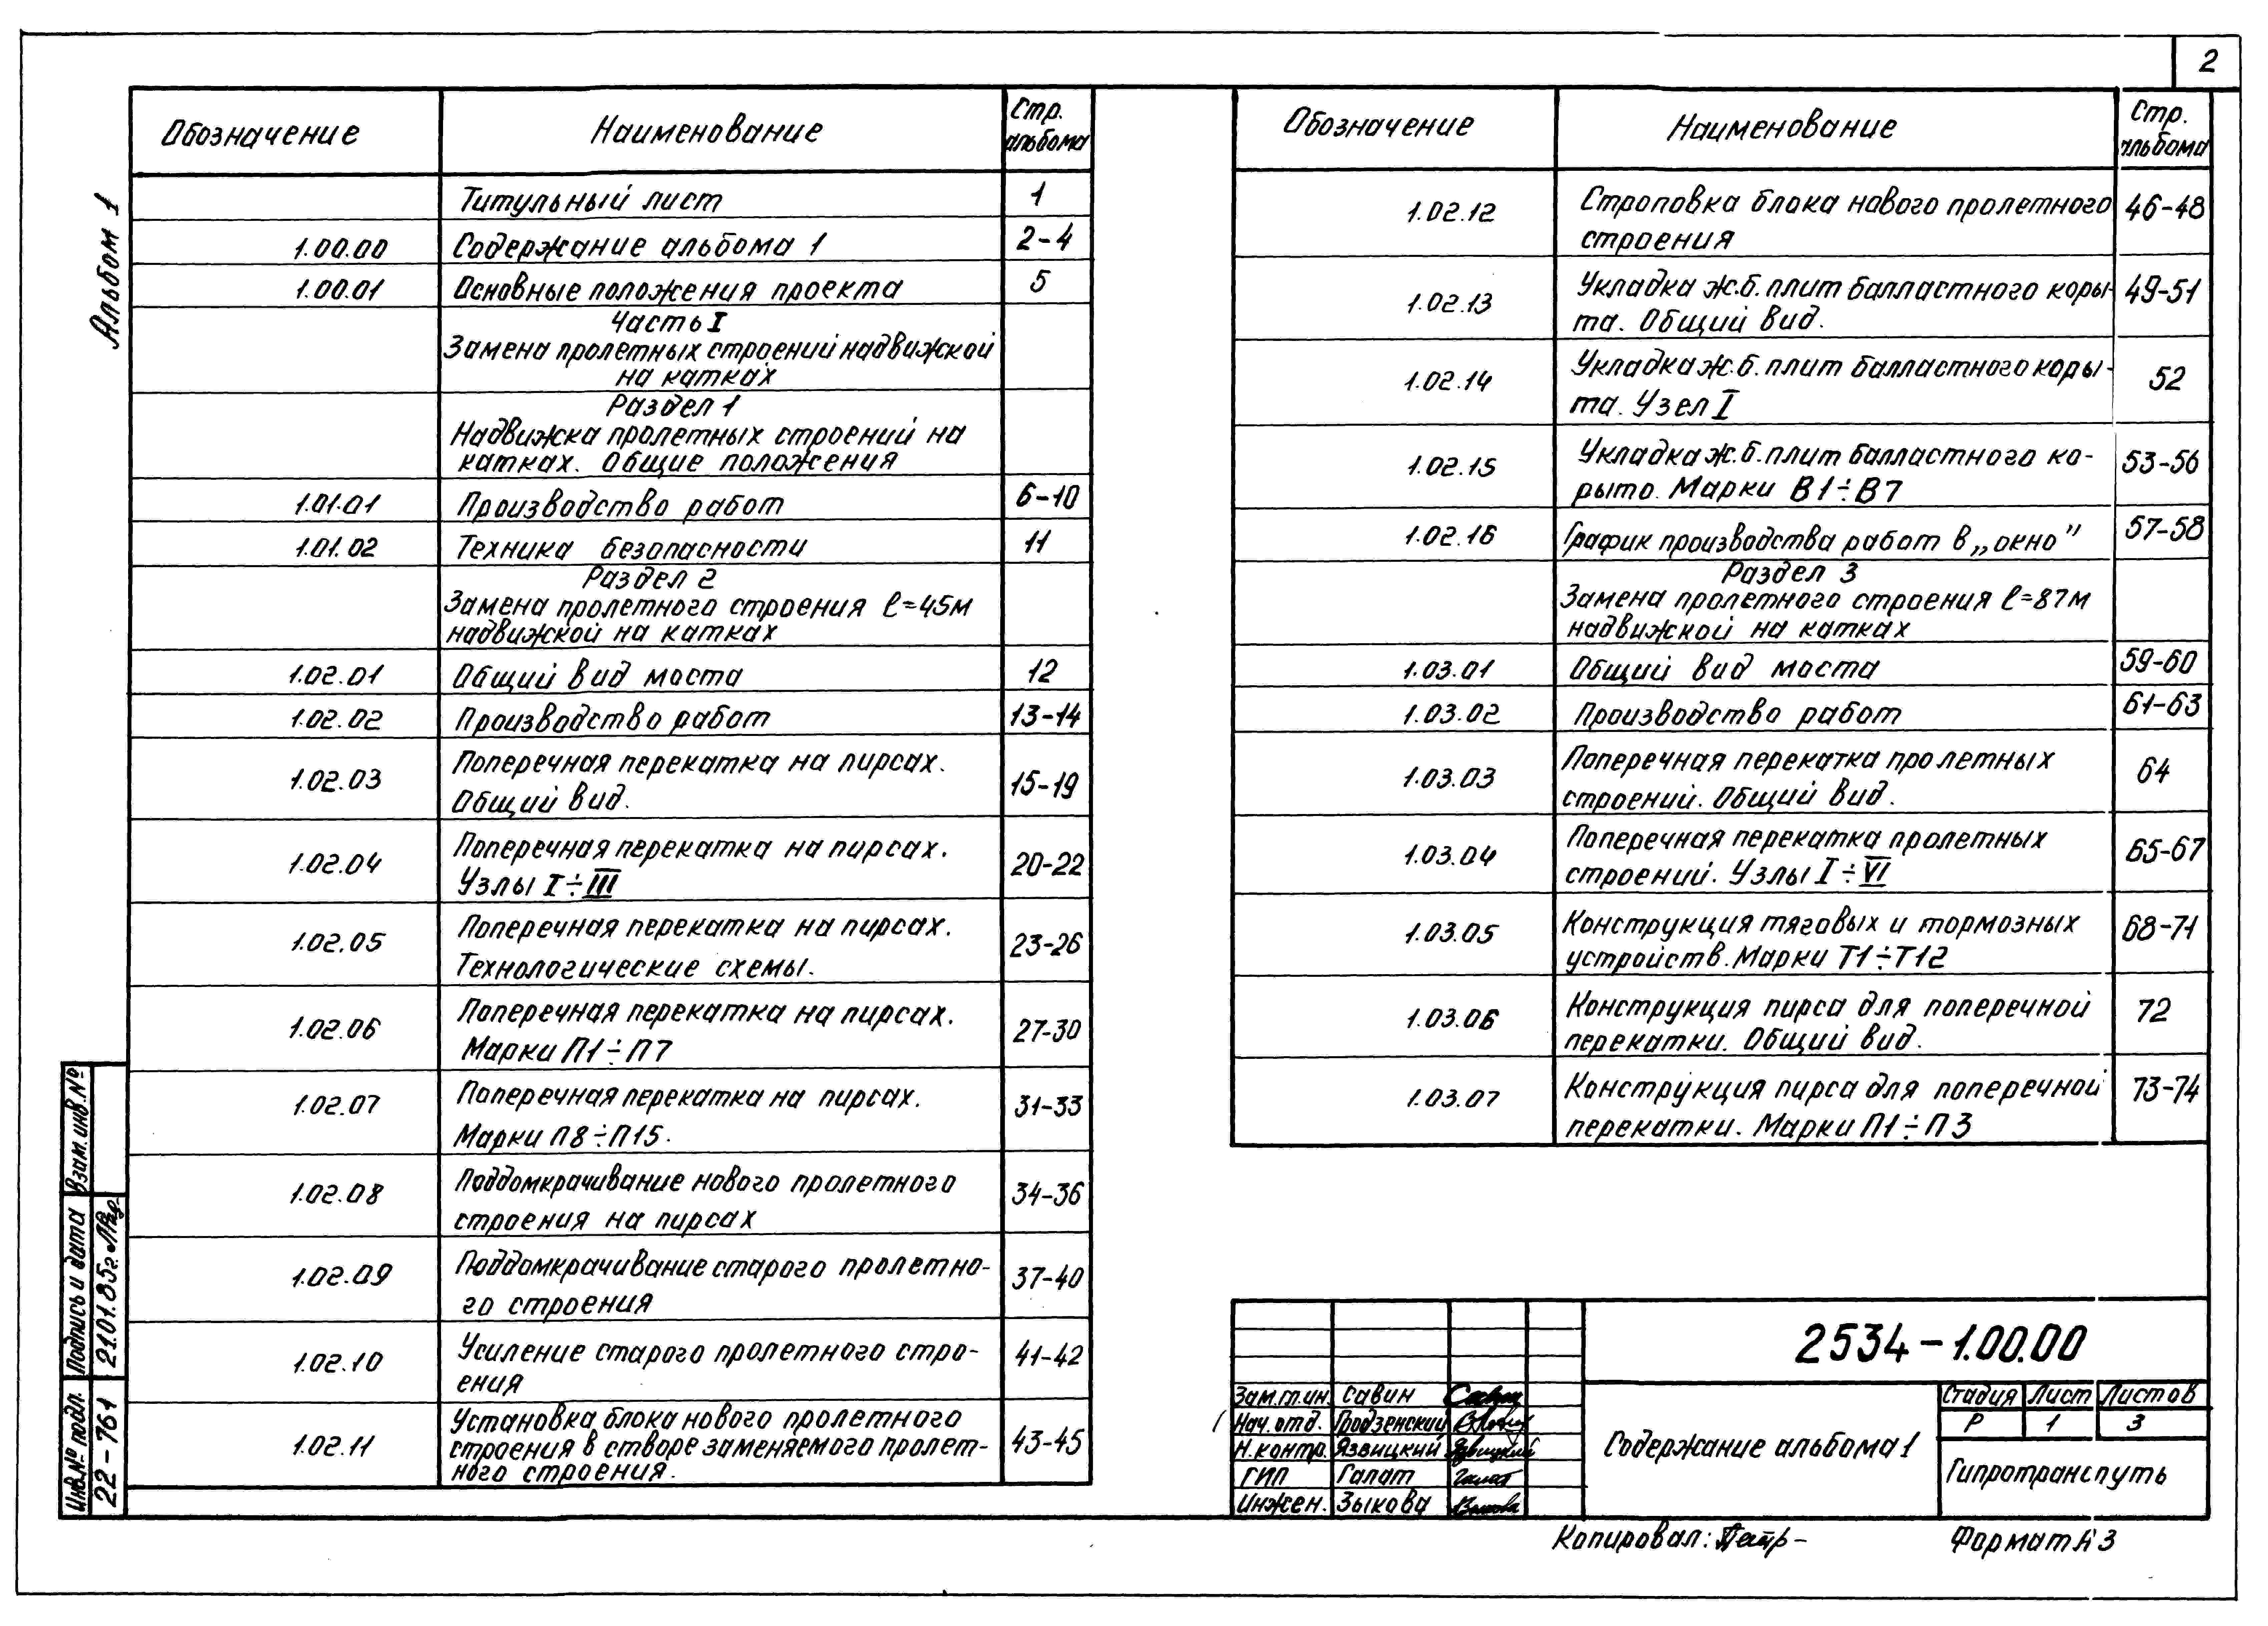 2
Альбом 1
Обозначение Наименование Стр. альбома
Титульный лист 1
1.00.00 Содержание альбома 1 2-4
1.00.01 Основные положения проекта 5
Часть I
Замена пролетных строений надвижкой
на катках
Раздел 1
Надвижка пролетных строений на
катках. Общие положения
1.01.01 Производство работ 6-10
1.01.02 Техника безопасности 11
Раздел 2
Замена пролетного строения ℓ=45м
надвижкой на катках
1.02.01 Общий вид моста 12
1.02.02 Производство работ 13-14
1.02.03 Поперечная перекатка на пирсах. 15-19
Общий вид.
1.02.04 Поперечная перекатка на пирсах. 20-22
Узлы I÷III
1.02.05 Поперечная перекатка на пирсах. 23-26
Технологические схемы.
1.02.06 Поперечная перекатка на пирсах. 27-30
Марки П1÷П7
1.02.07 Поперечная перекатка на пирсах. 31-33
Марки П8÷П15.
1.02.08 Поддомкрачивание нового пролетного 34-36
строения на пирсах
1.02.09 Поддомкрачивание старого пролетно- 37-40
го строения
1.02.10 Усиление старого пролетного стро- 41-42
ения
1.02.11 Установка блока нового пролетного 43-45
строения в створе заменяемого пролет-
ного строения.
Обозначение Наименование Стр. альбома
1.02.12 Строповка блока нового пролетного 46-48
строения
1.02.13 Укладка ж.б. плит балластного коры- 49-51
та. Общий вид.
1.02.14 Укладка ж.б. плит балластного коры- 52
та. Узел I
1.02.15 Укладка ж.б. плит балластного ко- 53-56
рыто. Марки В1÷В7
1.02.16 График производства работ в „окно" 57-58
Раздел 3
Замена пролетного строения ℓ=87м
надвижкой на катках
1.03.01 Общий вид моста 59-60
1.03.02 Производство работ 61-63
1.03.03 Поперечная перекатка пролетных 64
строений. Общий вид.
1.03.04 Поперечная перекатка пролетных 65-67
строений. Узлы I÷VI
1.03.05 Конструкция тяговых и тормозных 68-71
устройств. Марки Т1÷Т12
1.03.06 Конструкция пирса для поперечной 72
перекатки. Общий вид.
1.03.07 Конструкция пирса для поперечной 73-74
перекатки. Марки П1÷П3
Взам. инв. №
Подпись и дата 21.01.85г.
Инв. № подл. 22-761
2534-1.00.00
Зам.гл.ин. Савин
Нач. отд. Гродзенский
Н.контр. Язвицкий
ГИП Галат
Инжен. Зыкова
Содержание альбома 1
Стадия Лист Листов
Р 1 3
Гипротранспуть
Копировал:
Формат А3